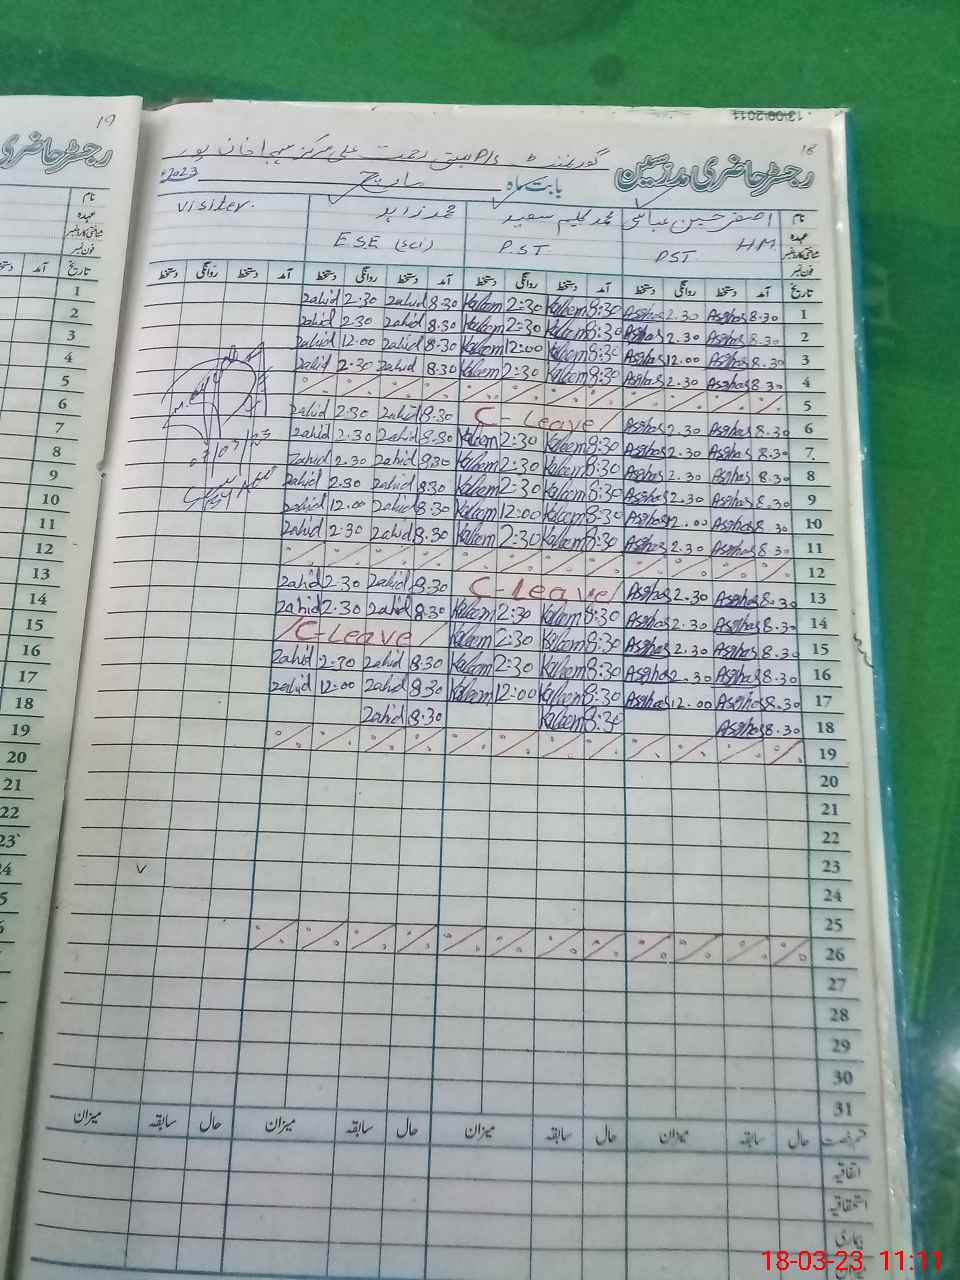 19
رجسٹر حاضری
18
رجسٹر حاضری مدرسین
بابت ماہ مارچ 2023
نام
عہدہ
شناختی کارڈ نمبر
فون نمبر
اصغر حسین عباسی HM PST
محمد کلیم سعید P.S.T
محمد زاہد E.S.E (sci)
visiter.
تاریخ آمد دستخط روانگی دستخط آمد دستخط روانگی دستخط آمد دستخط روانگی دستخط آمد دستخط روانگی دستخط
1 8.30 Asghar 2.30 Asghar 8:30 Kaleem 2:30 Kaleem 8.30 Zahid 2.30 Zahid
2 8.30 Asghar 2.30 Asghar 8:30 Kaleem 2:30 Kaleem 8.30 Zahid 2.30 Zahid
3 8.30 Asghar 12.00 Asghar 8:30 Kaleem 12:00 Kaleem 8.30 Zahid 12.00 Zahid
4 8.30 Asghar 2.30 Asghar 8:30 Kaleem 2:30 Kaleem 8.30 Zahid 2.30 Zahid
5
6 8.30 Asghar 2.30 Asghar C-Leave 8.30 Zahid 2.30 Zahid
7 8.30 Asghar 2.30 Asghar 8:30 Kaleem 2:30 Kaleem 8.30 Zahid 2.30 Zahid
8 8.30 Asghar 2.30 Asghar 8:30 Kaleem 2:30 Kaleem 8.30 Zahid 2.30 Zahid
9 8.30 Asghar 2.30 Asghar 8:30 Kaleem 2:30 Kaleem 8.30 Zahid 2.30 Zahid
10 8.30 Asghar 12.00 Asghar 8:30 Kaleem 12:00 Kaleem 8.30 Zahid 12.00 Zahid
11 8.30 Asghar 2.30 Asghar 8:30 Kaleem 2:30 Kaleem 8.30 Zahid 2.30 Zahid
12
13 8.30 Asghar 2.30 Asghar C-Leave 8.30 Zahid 2.30 Zahid
14 8.30 Asghar 2.30 Asghar 8:30 Kaleem 2:30 Kaleem 8.30 Zahid 2.30 Zahid
15 8.30 Asghar 2.30 Asghar 8:30 Kaleem 2:30 Kaleem C-Leave
16 8.30 Asghar 2.30 Asghar 8:30 Kaleem 2:30 Kaleem 8.30 Zahid 2.30 Zahid
17 8.30 Asghar 12.00 Asghar 8:30 Kaleem 12:00 Kaleem 8.30 Zahid 12:00 Zahid
18 8.30 Asghar 8:30 Kaleem 8.30 Zahid
19
20
21
22
23
24
25
26
27
28
29
30
31
حال سابقہ میزان حال سابقہ میزان حال سابقہ میزان حال سابقہ میزان
اتفاقیہ
استحقاقیہ
بیماری
میزان
18-03-23 11:11